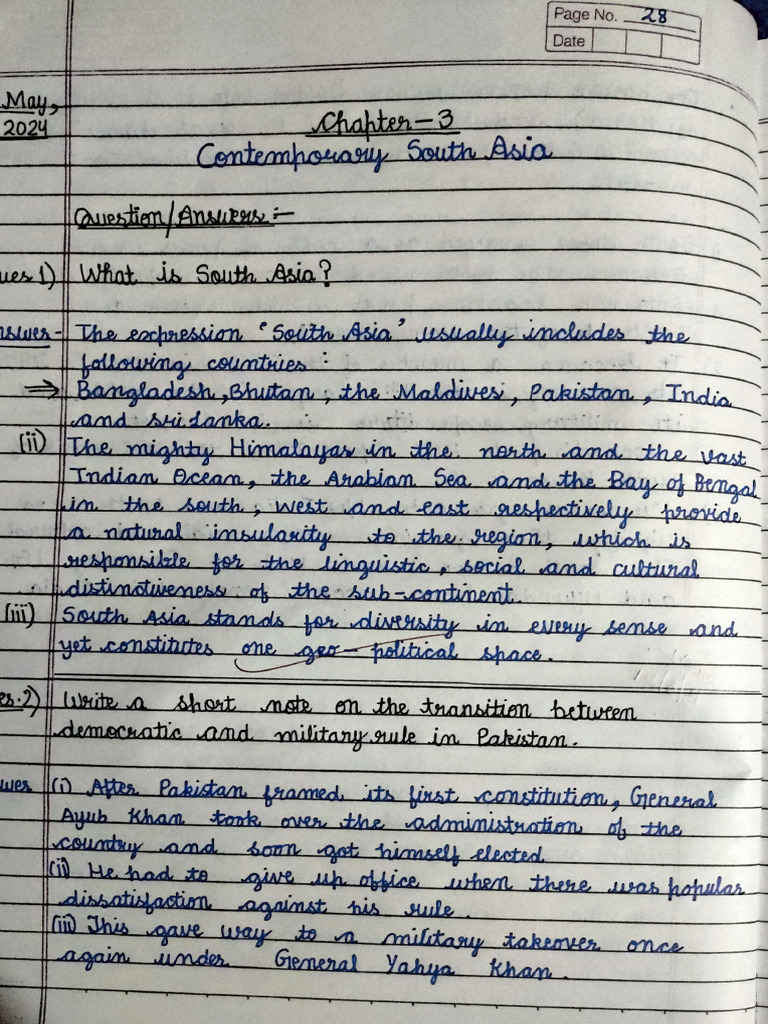 Page No. 28
Date
May,
2024
Chapter-3
Contemporary South Asia
Question/Answers:-
ues 1) What is South Asia?
nswer- The expression 'South Asia' usually includes the
following countries:
⇒ Bangladesh, Bhutan, the Maldives, Pakistan, India
and Sri Lanka.
(ii) The mighty Himalayas in the north and the vast
Indian Ocean, the Arabian Sea and the Bay of Bengal
in the south, west and east respectively provide
a natural insularity to the region, which is
responsible for the linguistic, social and cultural
distinctiveness of the sub-continent.
(iii) South Asia stands for diversity in every sense and
yet constitutes one geo-political space.
es.2) Write a short note on the transition between
democratic and military rule in Pakistan.
wer (i) After Pakistan framed its first constitution, General
Ayub Khan took over the administration of the
country and soon got himself elected
(ii) He had to give up office when there was popular
dissatisfaction against his rule.
(iii) This gave way to a military takeover once
again under General Yahya Khan.